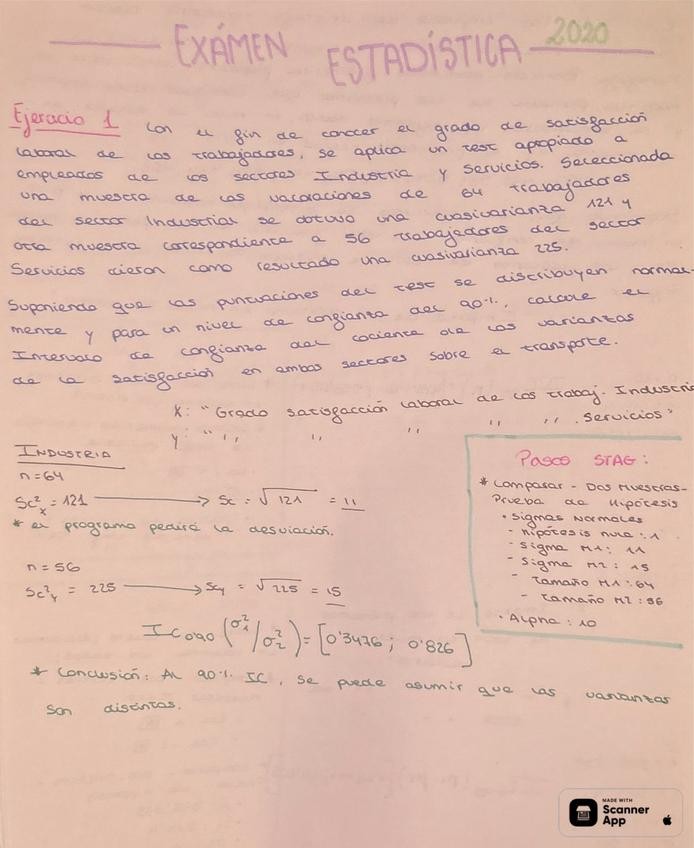 EXÁMEN ESTADÍSTICA 2020
Ejercicio 1 Con el fin de conocer el grado de satisfacción
laboral de los trabajadores, se aplica un test apropiado a
empleados de los sectores Industria y Servicios. Seleccionada
una muestra de las valoraciones de 64 trabajadores
del sector Industrial se obtuvo una cuasivarianza 121 y
otra muestra correspondiente a 56 trabajadores del sector
Servicios dieron como resultado una cuasivarianza 225.
Suponiendo que las puntuaciones del test se distribuyen normal-
mente y para un nivel de confianza del 90%, calcule el
Intervalo de confianza del cociente de las varianzas
de la satisfacción en ambos sectores sobre el transporte.
X: "Grado satisfacción laboral de los trabaj. Industria
Y: " ,, ,, ,, ,, ,, . Servicios"
INDUSTRIA
n=64
Sc²x = 121 → Sc = √121 = 11
* el programa pedirá la desviación.
n = 56
Sc²y = 225 → Scy = √225 = 15
Pasos STAG:
* Comparar - Dos Muestras-
Prueba de Hipótesis
• Sigmas Normales
- hipótesis nula : 1
- Sigma M1 : 11
- Sigma M2 : 15
- Tamaño M1 : 64
- Tamaño M2 : 56
• Alpha : 10
IC 0'90 (σ²1/σ²2) = [0'3476 ; 0'826]
* Conclusión: Al 90% IC, se puede asumir que las varianzas
son distintas.
MADE WITH
Scanner
App